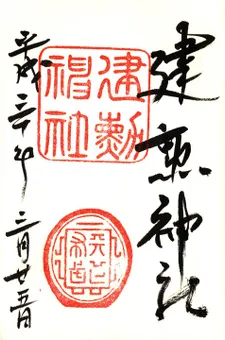 建勲神社
建勳
神社
平成三十年三月廿五日